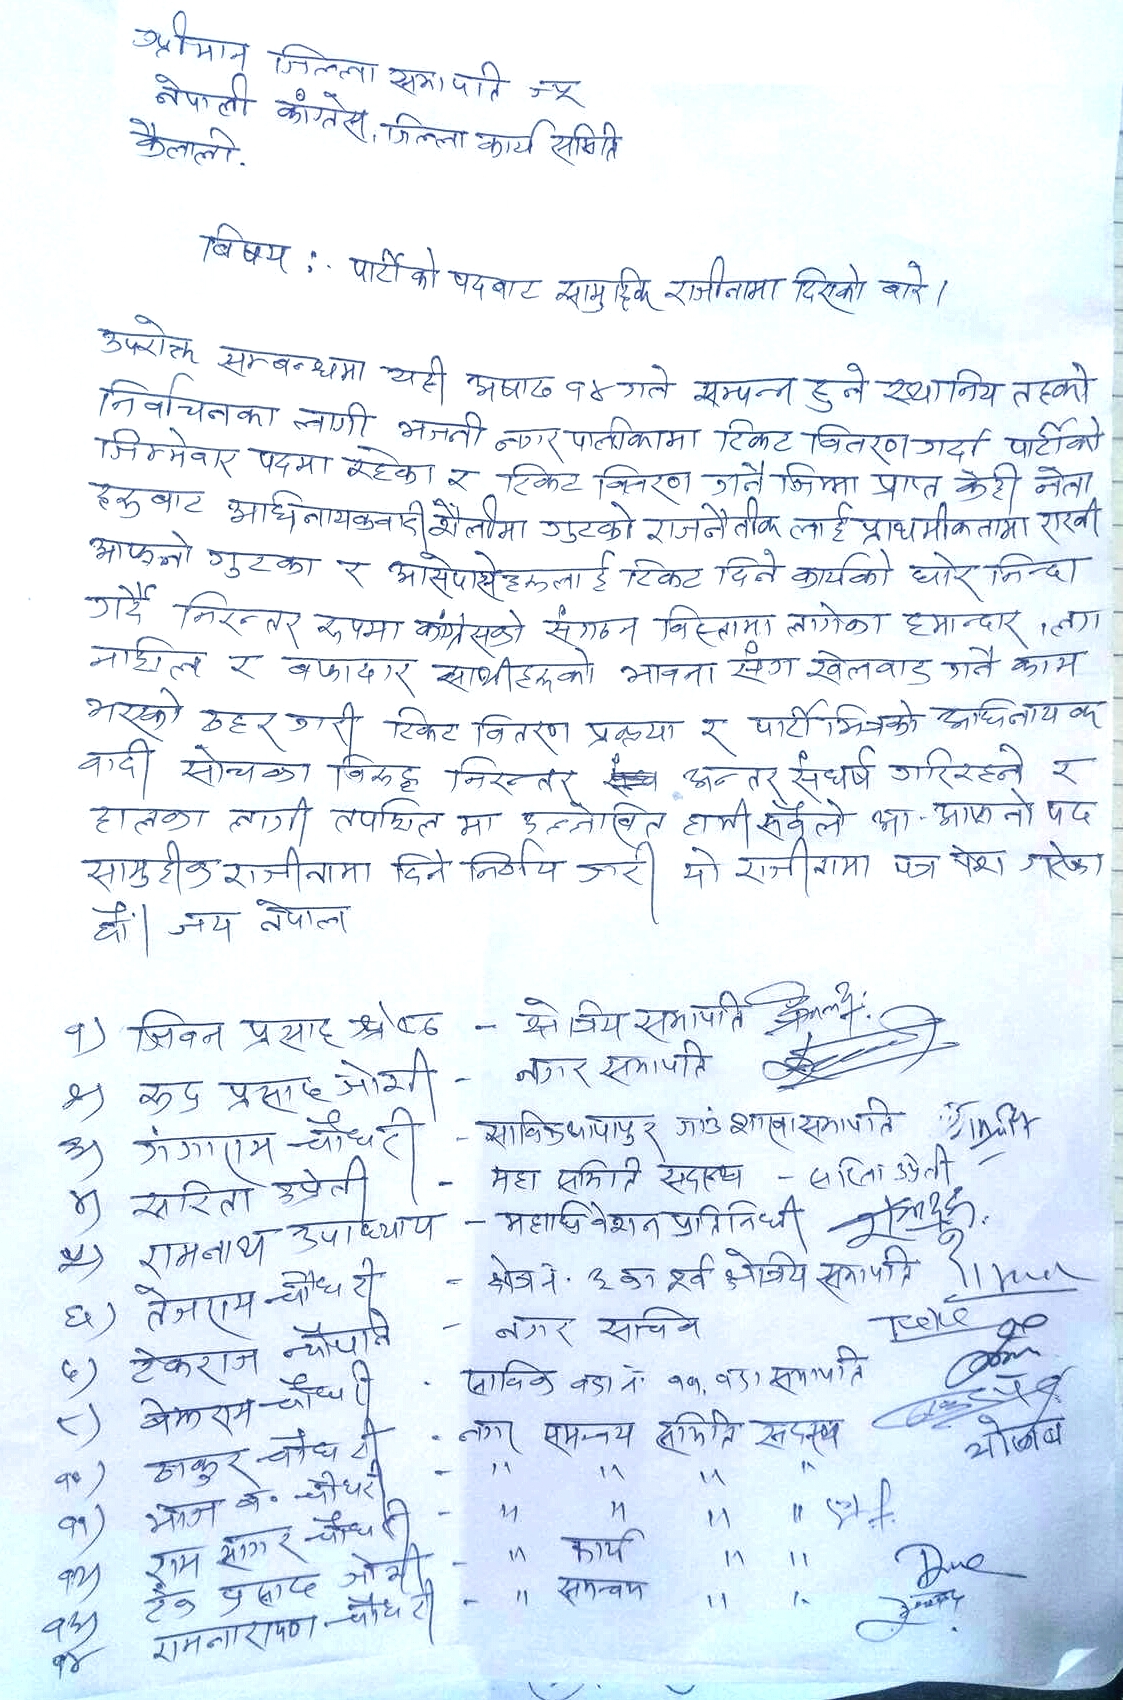 श्रीमान जिल्ला सभापति ज्यू
नेपाली कांग्रेस, जिल्ला कार्य समिति
कैलाली.
बिषय :- पार्टीको पदबाट सामुहिक राजीनामा दिएको बारे।
उपरोक्त सम्बन्धमा यही अषाढ १४ गते सम्पन्न हुने स्थानिय तहको
निर्वाचनका लागी भजनी नगरपालीकामा टिकट वितरण गर्दा पार्टीको
जिम्मेवार पदमा रहेका र टिकट वितरण गर्ने जिम्मा प्राप्त केही नेता
हरुबाट अधिनायकवादी शैलीमा गुटको राजनैतीक लाई प्राथमीकतामा राखी
आफ्नो गुटका र आसेपासेहरुलाई टिकट दिने कार्यको घोर निन्दा
गर्दै निरन्तर रुपमा कांग्रेसको संगठन विस्तामा लागेका इमान्दार, लग
नाशिल र बफादार साथीहरुको भावना संग खेलवाड गर्ने काम
भएको ठहर गरी टिकट वितरण प्रकृया र पार्टीभित्रको अधिनायक
वादी सोचका विरुद्ध निरन्तर अन्तर संघर्ष गरिरहने र
हालका लागी तपशिल मा उल्लेखित हामी सबैले आ-आफ्नो पद
सामुहीक राजीनामा दिने निर्णय गरी यो राजीनामा पत्र पेश गरेका
छौं। जय नेपाल
१) जिवन प्रसाद श्रेष्ठ - क्षेत्रिय सभापति
२) रुद्र प्रसाद जोशी - नगर सभापति
३) गंगाराम चौधरी - साविक थापापुर गाउं शाखा सभापति
४) सरिता उप्रेती - महा समिति सदस्य - सरिता उप्रेती
५) रामनाथ उपाध्याय - महाधिवेशन प्रतिनिधी
६) तेजराम चौधरी - क्षेत्र नं. ३ का पूर्व क्षेत्रिय सभापति
७) टेकराज न्यौपाने - नगर सचिव
८) चौधरी - साविक वडा नं. ११, वडा सभापति
१०) ठाकुर चौधरी - नगर समन्वय समिति सदस्य
११) भोज ब. चौधरी - " " " "
१२) राम सागर चौधरी - " " " "
१३) टेक प्रसाद जोशी - " कार्य " "
१४ रामनारायण चौधरी - " समन्वय " "